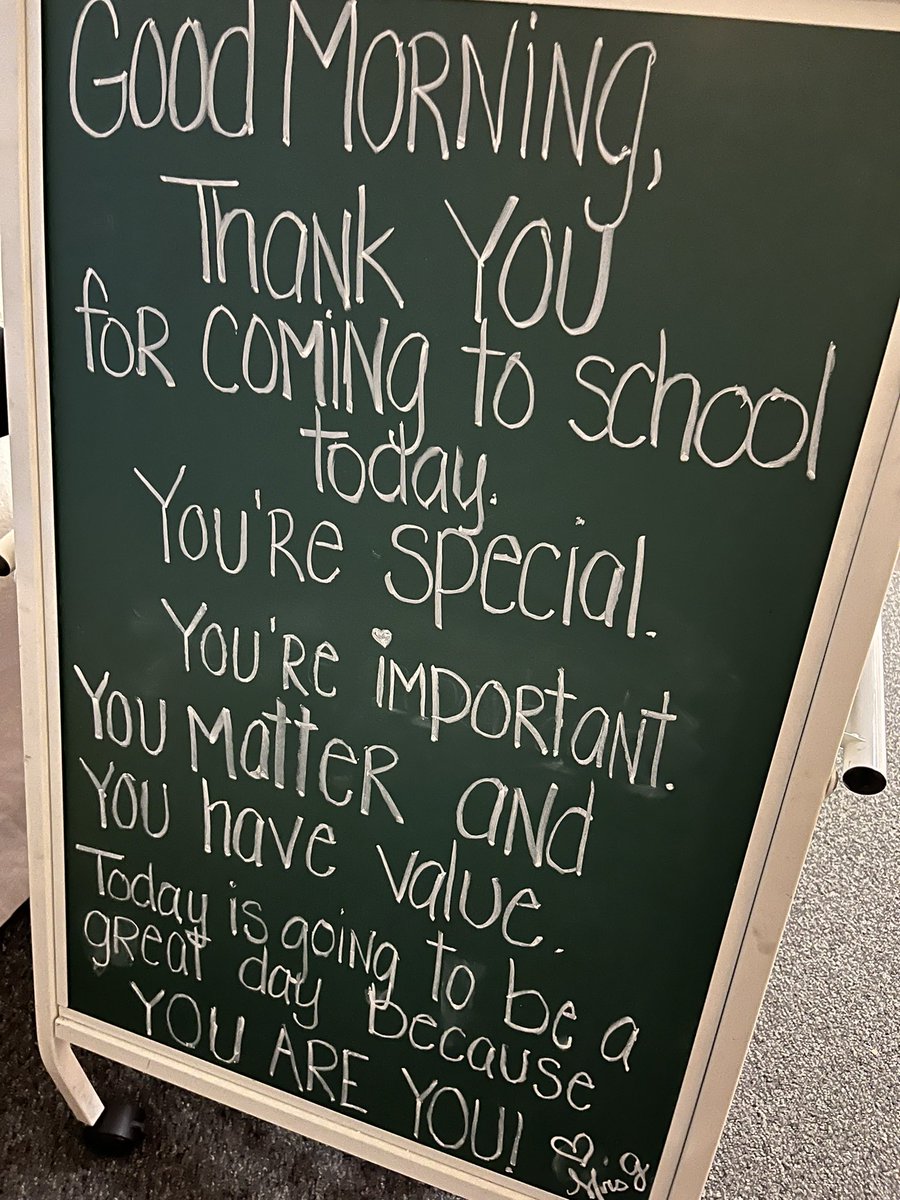 Good Morning,
Thank You
for coming to school
today.
You're special.
You're important.
You matter and
You have value.
Today is going to be a
great day because
YOU ARE YOU!
Mrs g